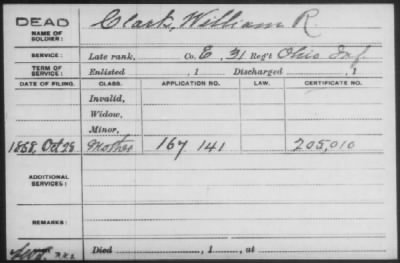 DEAD Clark, William R.
NAME OF SOLDIER:
SERVICE: Late rank, Co. E, 31 Reg't Ohio Inf.
TERM OF SERVICE: Enlisted , 1 Discharged , 1
DATE OF FILING. CLASS. APPLICATION NO. LAW. CERTIFICATE NO.
Invalid,
Widow,
Minor,
1868, Oct 28 Mother 167 141 205,010
ADDITIONAL SERVICES:
REMARKS:
Died , 1 , at